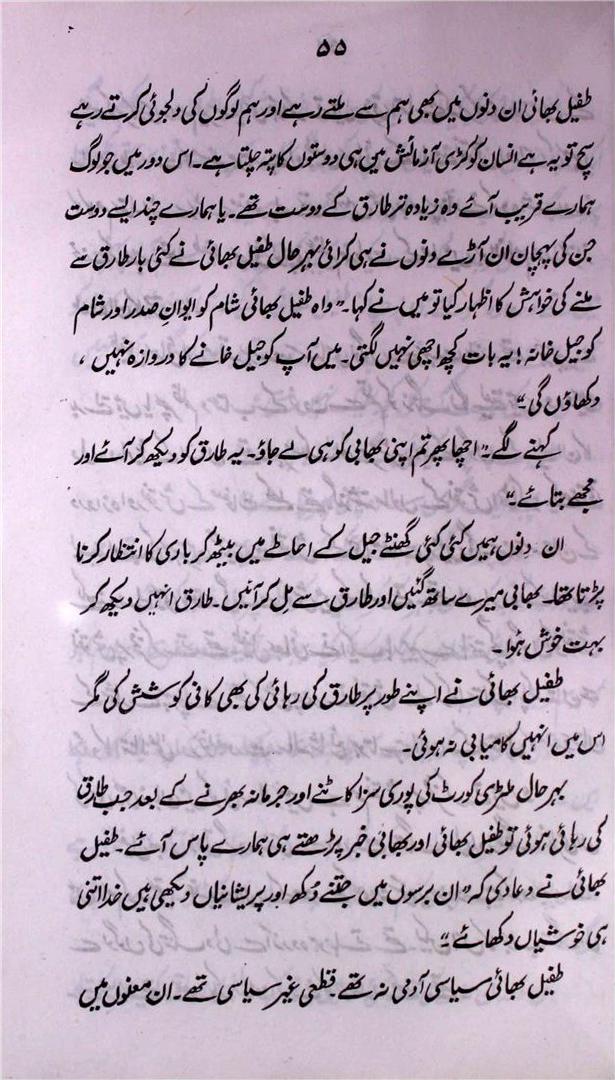 ۵۵
طفیل بھائی ان دنوں میں بھی ہم سے ملتے رہے اور ہم لوگوں کی دلجوئی کرتے رہے
سچ تو یہ ہے انسان کو کڑی آزمائش میں ہی دوستوں کا پتہ چلتا ہے۔ اس دور میں جو لوگ
ہمارے قریب آئے وہ زیادہ تر طارق کے دوست تھے۔ یا ہمارے چند ایسے دوست
جن کی پہچان ان آڑے دنوں نے ہی کرائی بہر حال طفیل بھائی نے کئی بار طارق سے
ملنے کی خواہش کا اظہار کیا تو میں نے کہا۔ ”واہ طفیل بھائی شام کو ایوانِ صدر اور شام
کو جیل خانہ! یہ بات کچھ اچھی نہیں لگتی۔ میں آپ کو جیل خانے کا دروازہ نہیں،
دکھاؤں گی۔“
کہنے لگے۔ ”اچھا پھر تم اپنی بھابی کو ہی لے جاؤ۔ یہ طارق کو دیکھ کر آئے اور
مجھے بتائے۔“
ان دنوں ہمیں کئی کئی گھنٹے جیل کے احاطے میں بیٹھ کر باری کا انتظار کرنا
پڑتا تھا۔ بھابی میرے ساتھ گئیں اور طارق سے مل کر آئیں۔ طارق انہیں دیکھ کر
بہت خوش ہوا۔
طفیل بھائی نے اپنے طور پر طارق کی رہائی کی بھی کافی کوشش کی مگر
اس میں انہیں کامیابی نہ ہوئی۔
بہر حال ملٹری کورٹ کی پوری سزا کاٹنے اور جرمانہ بھرنے کے بعد جب طارق
کی رہائی ہوئی تو طفیل بھائی اور بھابی خبر پڑھتے ہی ہمارے پاس آئے۔ طفیل
بھائی نے دعا دی کہ ”ان برسوں میں جتنے دُکھ اور پریشانیاں دیکھی ہیں خدا اتنی
ہی خوشیاں دکھائے۔“
طفیل بھائی سیاسی آدمی نہ تھے۔ قطعی غیر سیاسی تھے۔ ان معنوں میں